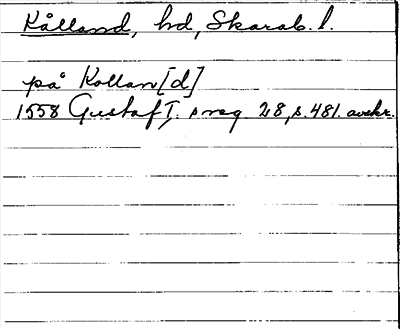 Kålland, hd, Skarab. l.
på Kollan[d]
1558 Gustaf I:s reg 28, s. 481. avskr.